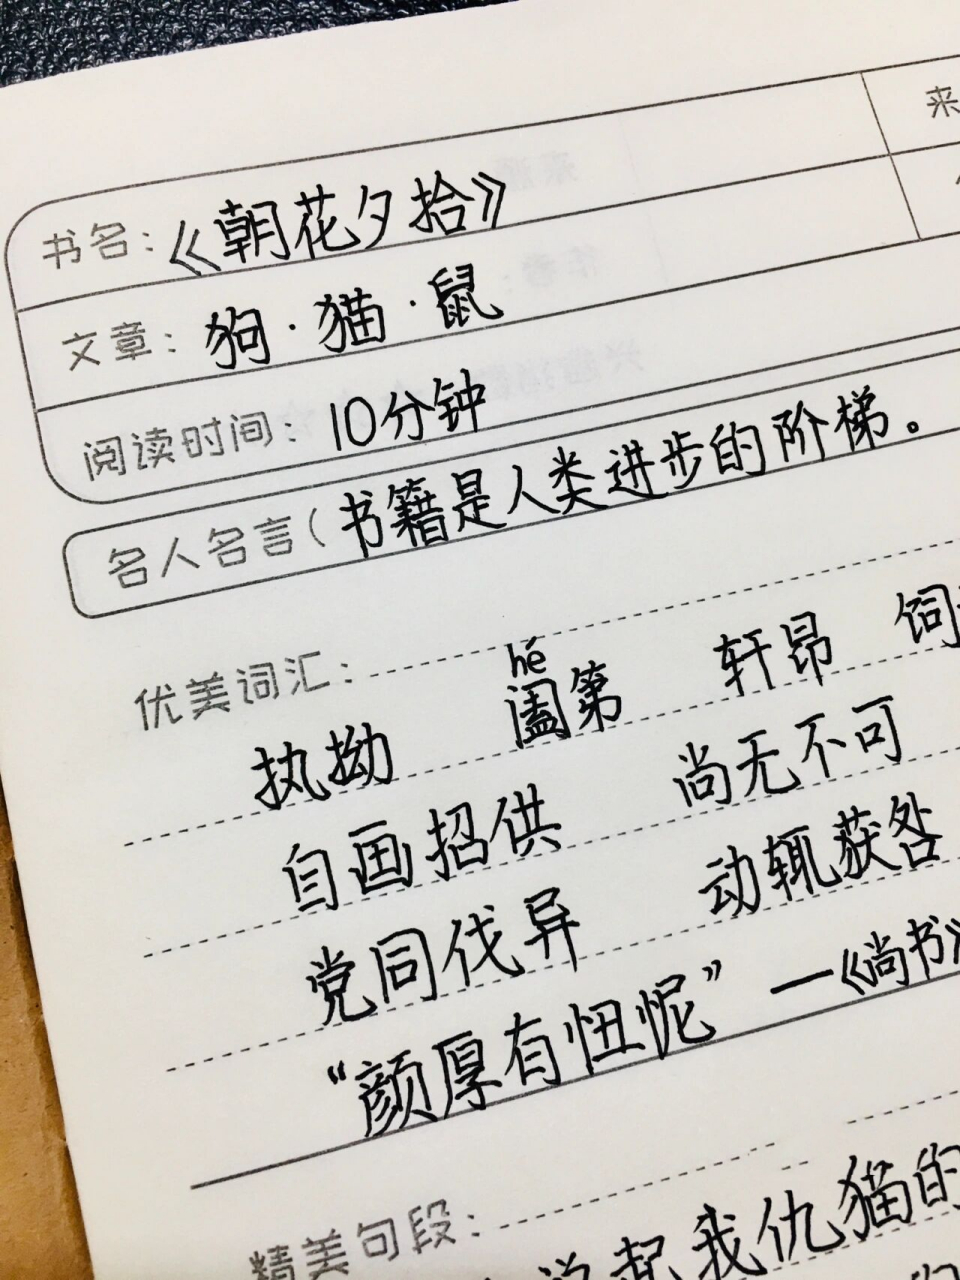 来
书名：《朝花夕拾》
文章：狗·猫·鼠
阅读时间：10分钟
名人名言（书籍是人类进步的阶梯。
优美词汇：
hé
执拗 阖第 轩昂 饲
自画招供 尚无不可
党同伐异 动辄获咎
“颜厚有忸怩”—《尚书》
精美句段：
说起我仇猫的